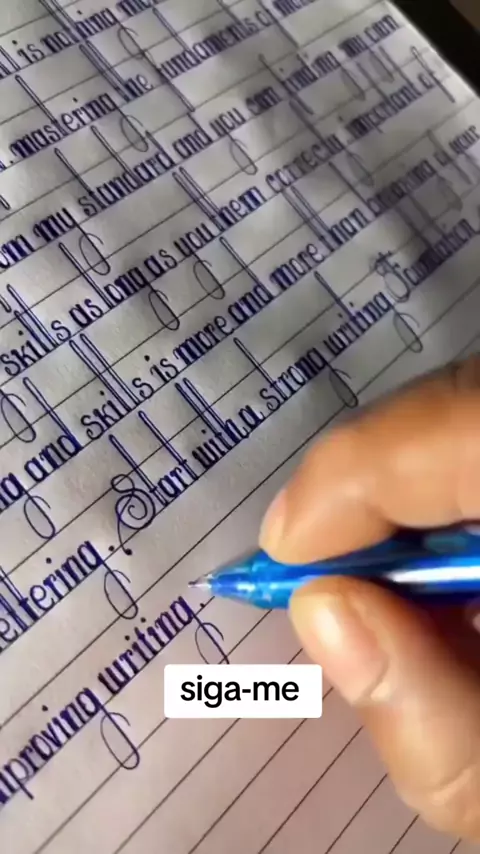 is nothing
mastering the fundaments
om my standard and you can finding my own
skills as long as you them correctly important of
ng and skills is more and more than amazing is your
eltering. Start with a strong writing Foundation
mproving writing.
siga-me